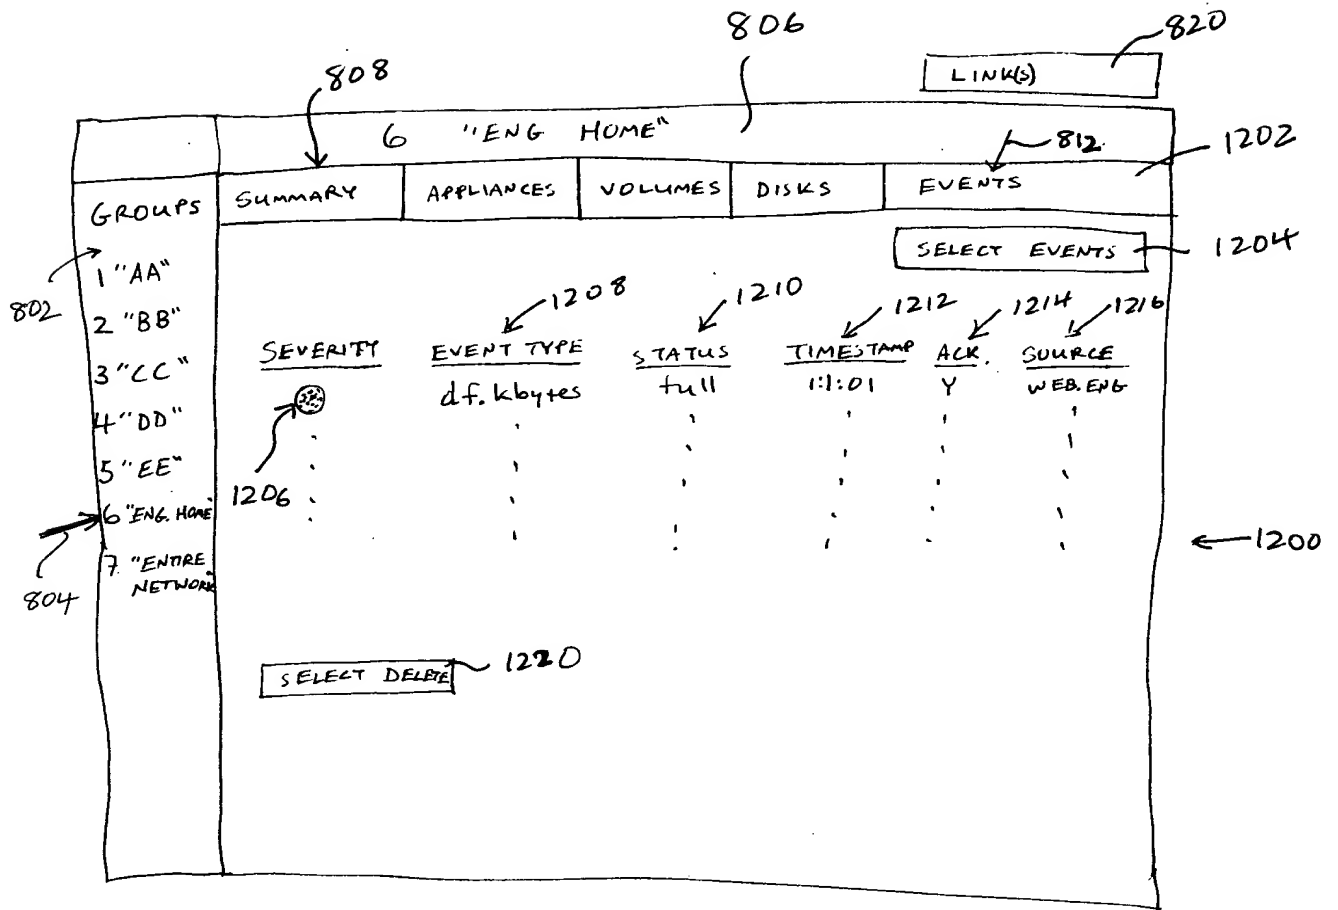 806
820
LINK(S)
808
6 "ENG HOME"
812
1202
GROUPS
SUMMARY APPLIANCES VOLUMES DISKS EVENTS
SELECT EVENTS
1204
802
1 "AA"
2 "BB"
3 "CC"
4 "DD"
5 "EE"
6 "ENG. HOME"
7. "ENTIRE
NETWORK"
804
1208 1210 1212 1214 1216
SEVERITY EVENT TYPE STATUS TIMESTAMP ACK. SOURCE
df.kbytes full 1:1:01 Y WEB.ENG
1206
1200
SELECT DELETE
1220